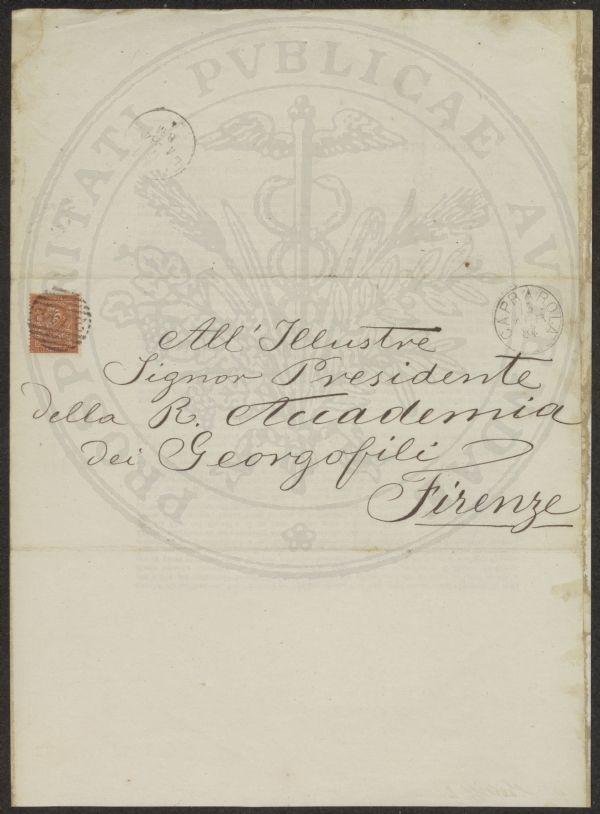 PRO PROSPERITATI PVBLICAE AVGENDA
CAPRAROLA
84
All' Illustre
Signor Presidente
della R. Accademia
dei Georgofili
Firenze